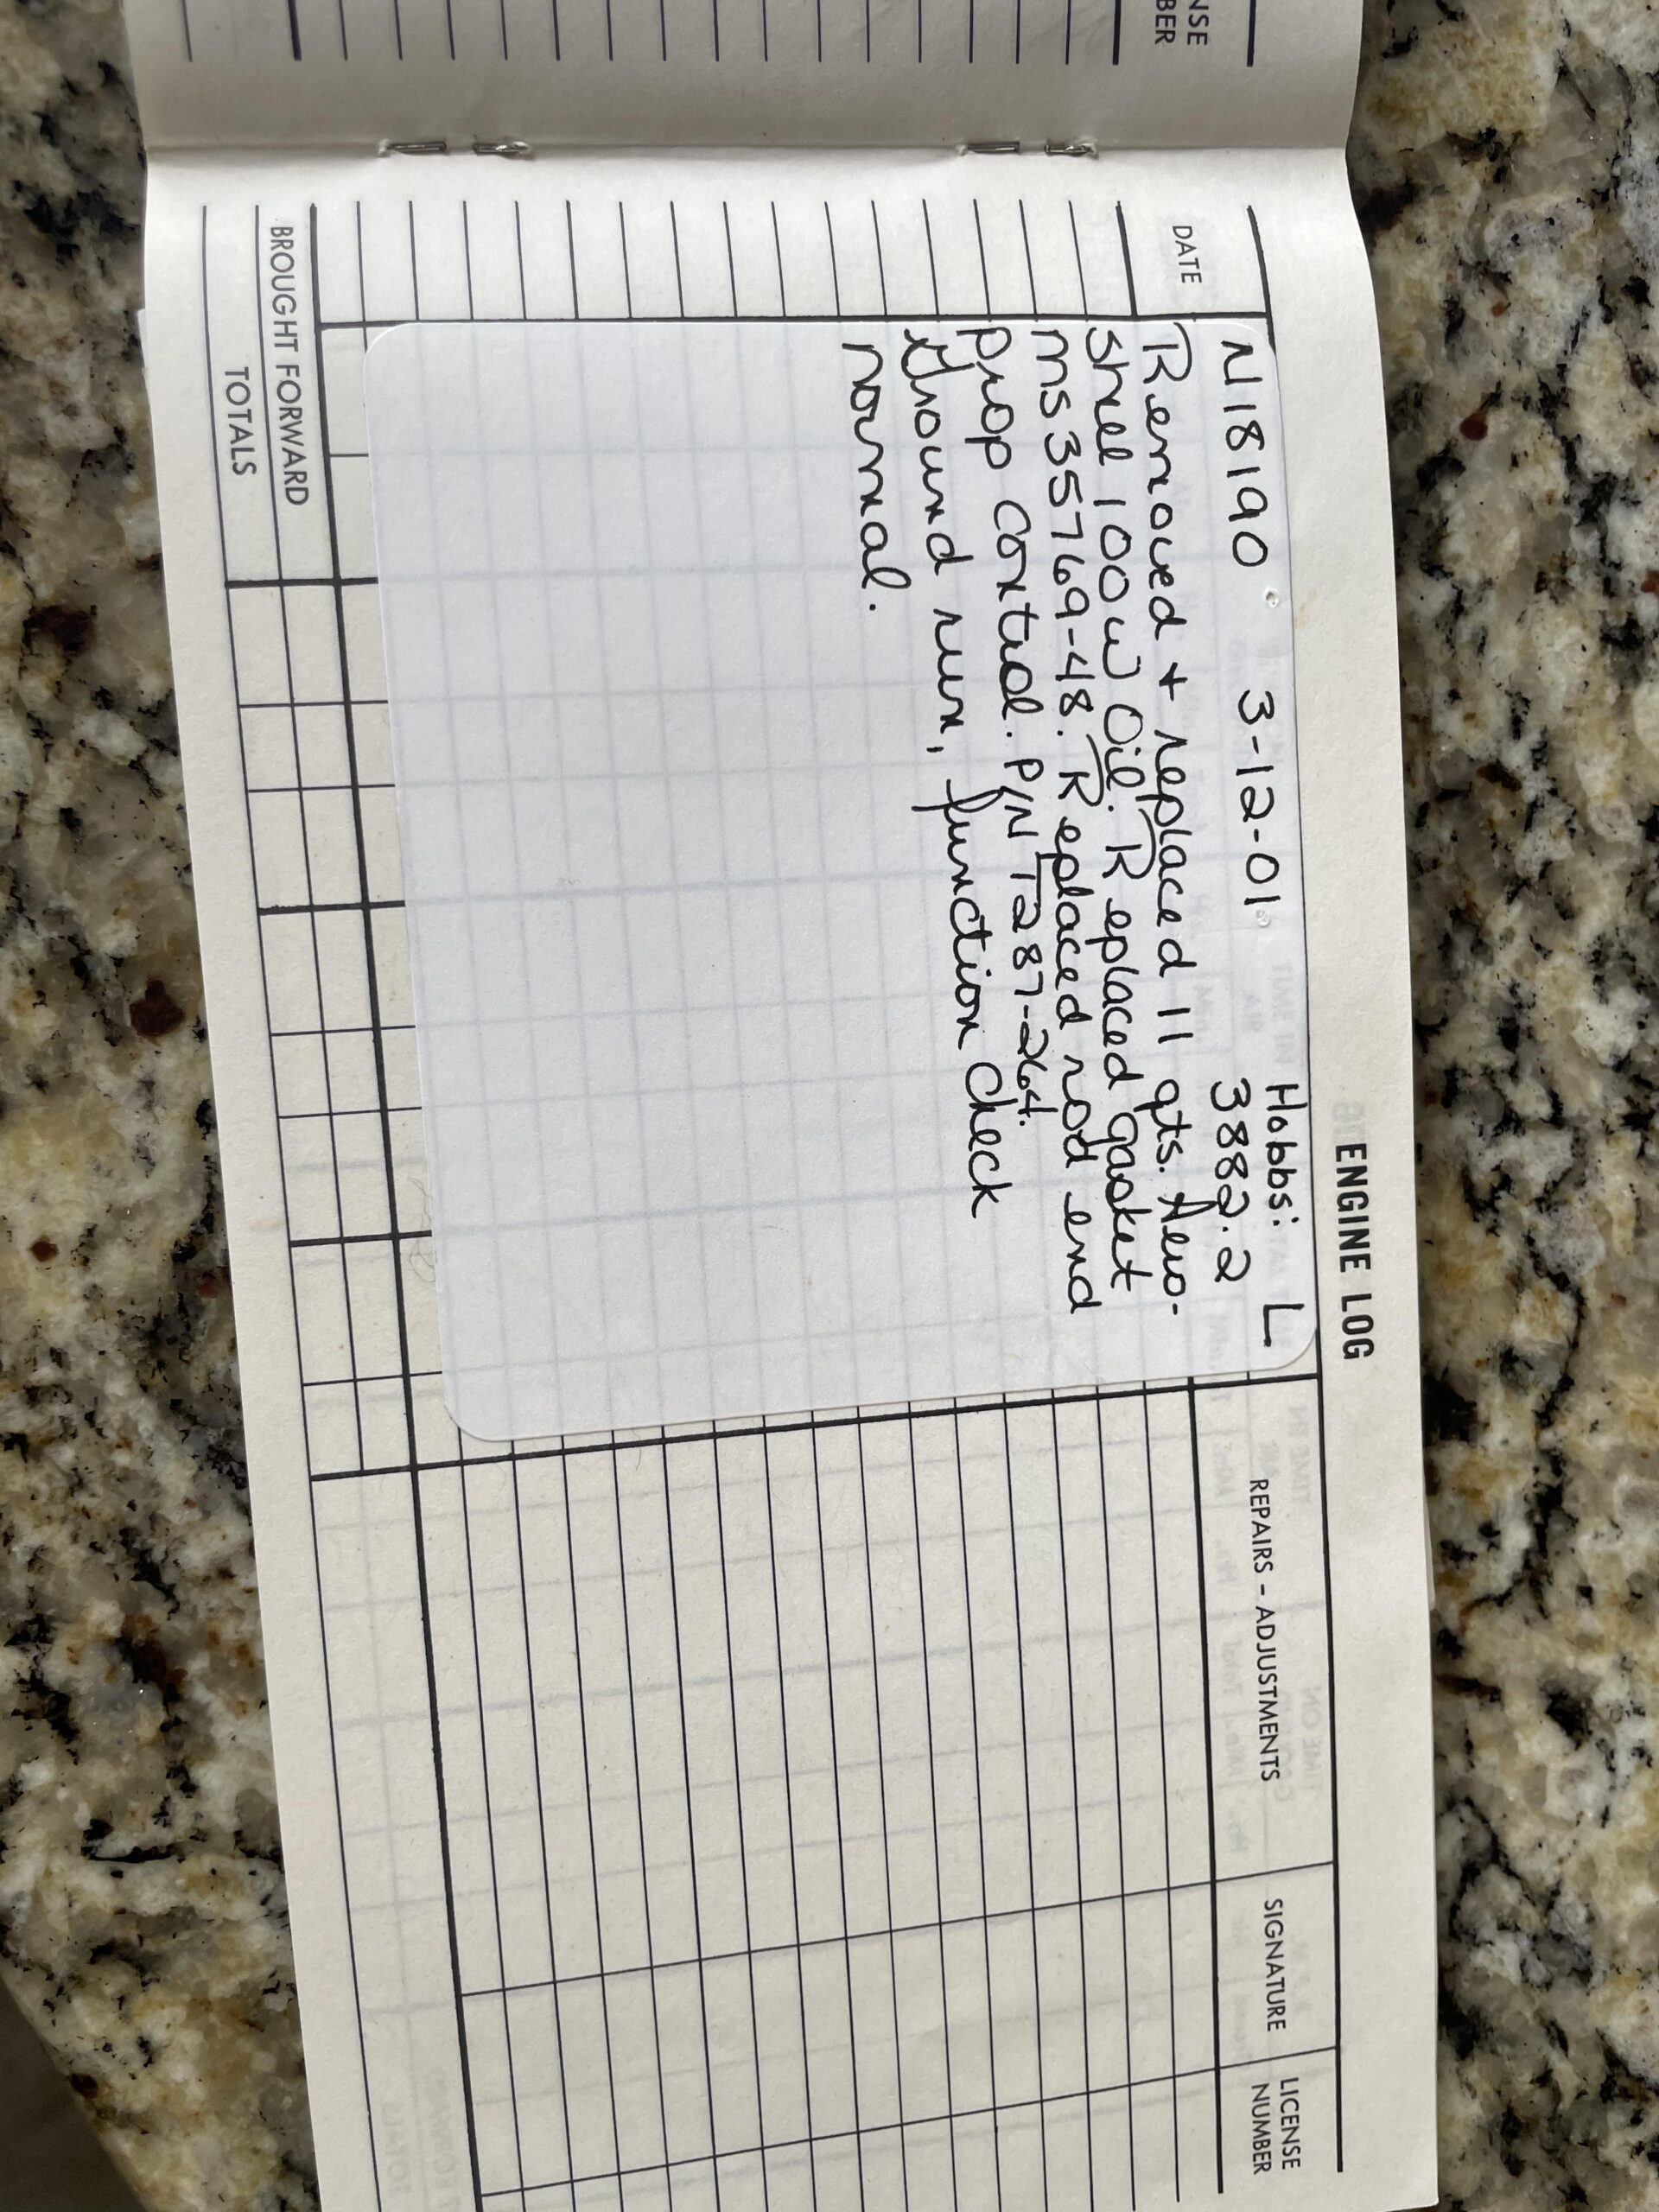 NSE
BER
ENGINE LOG
DATE
REPAIRS - ADJUSTMENTS
SIGNATURE
LICENSE
NUMBER
Hobbs: L
N18190 3-12-01 3882.2
Removed + replaced 11 qts. Aero-
shell 100w Oil. Replaced gasket
MS35769-48. Replaced rod end
prop control. P/N T287-264.
Ground run, function check
normal.
BROUGHT FORWARD
TOTALS